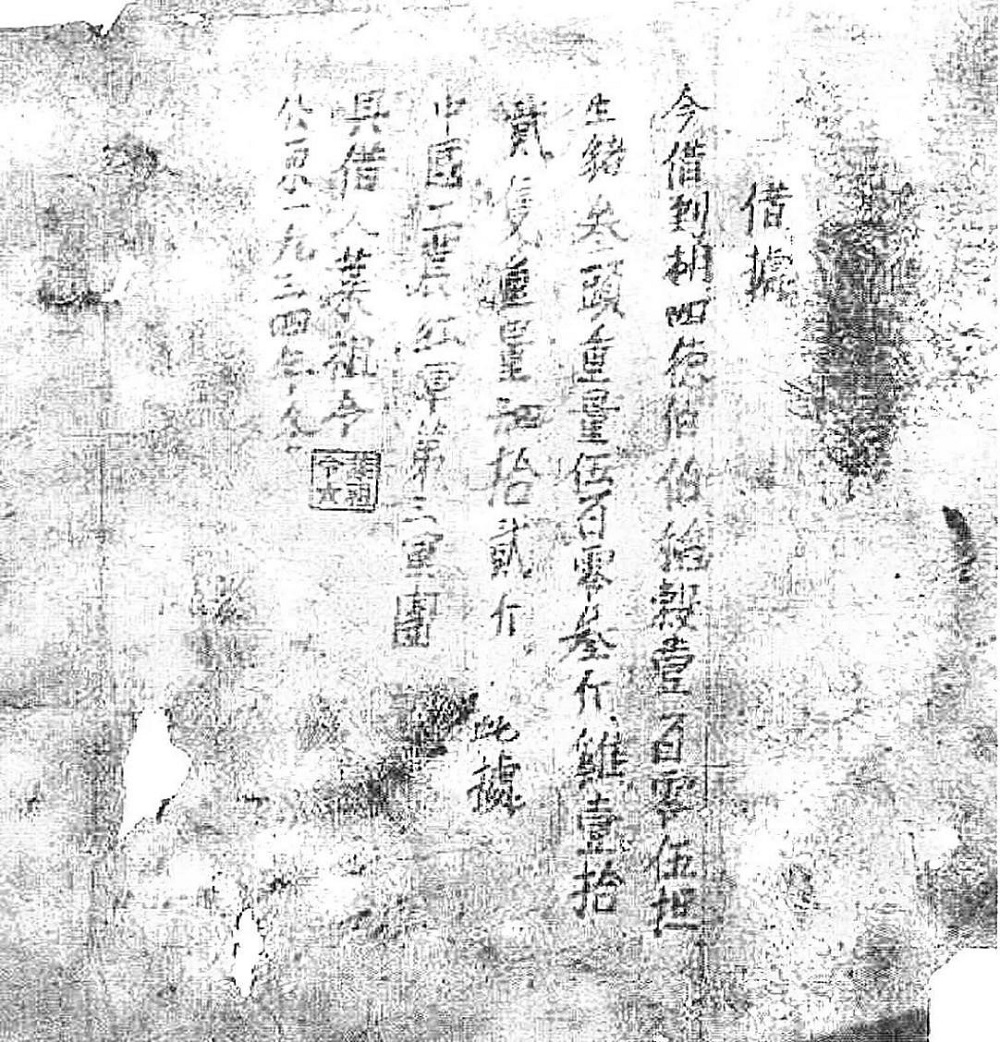 借據
今借到胡四德伯伯稻穀壹百零伍担
生豬叁頭重量伍百零叁斤雞壹拾
貳隻重量拾貳斤 此據
中國工農紅軍第三軍團
具借人葉祖令
公元一九三四年冬